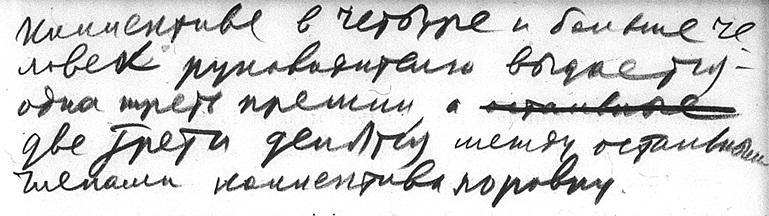 коллективе в четыре и больше че
ловек руководителю выдается
одна треть премии, а остальные
две трети делятся между остальными
членами коллектива поровну.